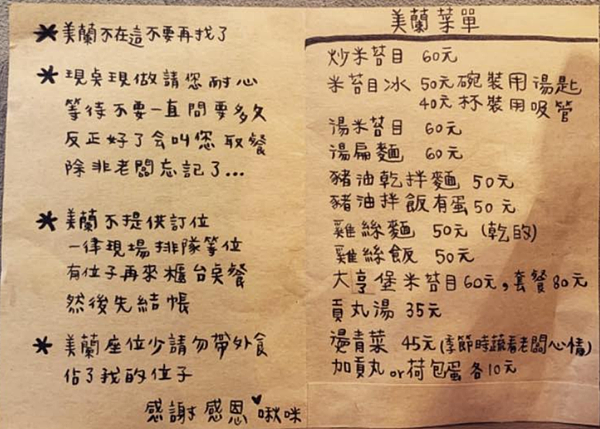 * 美蘭不在這不要再找了
* 現桌現做請您耐心
等待不要一直問要多久
反正好了會叫您取餐
除非老闆忘記了...
* 美蘭不提供訂位
一律現場排隊等位
有位子再來櫃台桌餐
然後先結帳
* 美蘭座位少請勿帶外食
佔了我的位子
感謝感恩♥啾咪
美蘭菜單
炒米苔目 60元
米苔目冰 50元碗裝用湯匙
40元杯裝用吸管
湯米苔目 60元
湯扁麵 60元
豬油乾拌麵 50元
豬油拌飯有蛋50元
雞絲麵 50元(乾的)
雞絲飯 50元
大亨堡米苔目60元,套餐80元
貢丸湯 35元
燙青菜 45元(季節時蔬看老闆心情)
加貢丸or荷包蛋各10元